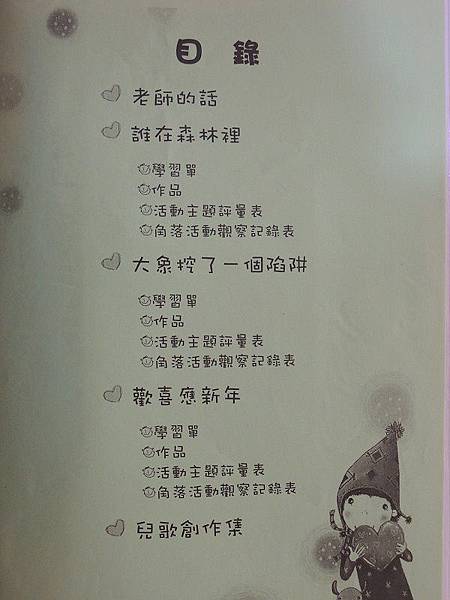 目錄
老師的話
誰在森林裡
學習單
作品
活動主題評量表
角落活動觀察記錄表
大象挖了一個陷阱
學習單
作品
活動主題評量表
角落活動觀察記錄表
歡喜應新年
學習單
作品
活動主題評量表
角落活動觀察記錄表
兒歌創作集